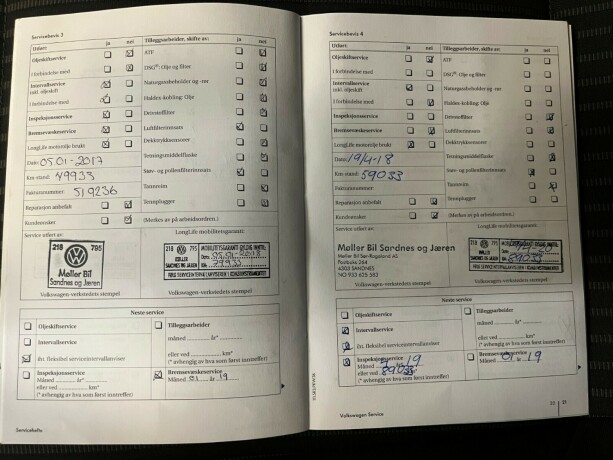 Servicebevis 3
Utført: ja nei
Tilleggsarbeider, skifte av: ja nei
Oljeskiftservice
ATF
I forbindelse med
DSG®: Olje og filter
Intervallservice
inkl. oljeskift
Naturgassbeholder og -rør
I forbindelse med
Haldex-kobling: Olje
Drivstoffilter
Inspeksjonsservice
Luftfilterinnsats
Bremsevæskeservice
Dekktrykksensorer
LongLife motorolje brukt
Tetningsmiddelflaske
Dato: 05.01-2017
Støv- og pollenfilterinnsats
Km-stand: 49933
Tannreim
Fakturanummer: 519236
Tennplugger
Reparasjon anbefalt
Kundeønsker
(Merkes av på arbeidsordren.)
Service utført av:
LongLife mobilitetsgaranti:
218 795
Møller Bil
Sandnes og Jæren
218 795 MOBILITETSGARANTI GYLDIG INNTIL:
MØLLER
SANDNES OG JÆREN
Volkswagen-verkstedets stempel
Volkswagen-verkstedets stempel
Neste service
Oljeskiftservice
Tilleggsarbeider
Måned år*
Intervallservice
eller ved km*
(* avhengig av hva som først inntreffer)
iht. fleksibel serviceintervallanviser
Inspeksjonsservice
Måned år*
eller ved km*
(* avhengig av hva som først inntreffer)
Bremsevæskeservice
Måned 01 år 19
Servicehefte
Servicebevis 4
Utført: ja nei
Tilleggsarbeider, skifte av: ja nei
Oljeskiftservice
ATF
I forbindelse med
DSG®: Olje og filter
Intervallservice
inkl. oljeskift
Naturgassbeholder og -rør
I forbindelse med
Haldex-kobling: Olje
Drivstoffilter
Inspeksjonsservice
Luftfilterinnsats
Bremsevæskeservice
Dekktrykksensorer
LongLife motorolje brukt
Tetningsmiddelflaske
Dato: 19/4-18
Støv- og pollenfilterinnsats
Km-stand: 59033
Tannreim
Fakturanummer:
Tennplugger
Reparasjon anbefalt
Kundeønsker
(Merkes av på arbeidsordren.)
Service utført av:
LongLife mobilitetsgaranti:
Møller Bil Sandnes og Jæren
Møller Bil Sør-Rogaland AS
Postboks 264
4303 SANDNES
Volkswagen-verkstedets stempel
Volkswagen-verkstedets stempel
Neste service
Oljeskiftservice
Tilleggsarbeider
Måned år*
Intervallservice
eller ved km*
(* avhengig av hva som først inntreffer)
iht. fleksibel serviceintervallanviser
Inspeksjonsservice
Måned 19
eller ved 89033
(* avhengig av hva som først inntreffer)
Bremsevæskeservice
Måned 01 år 19
Volkswagen Service